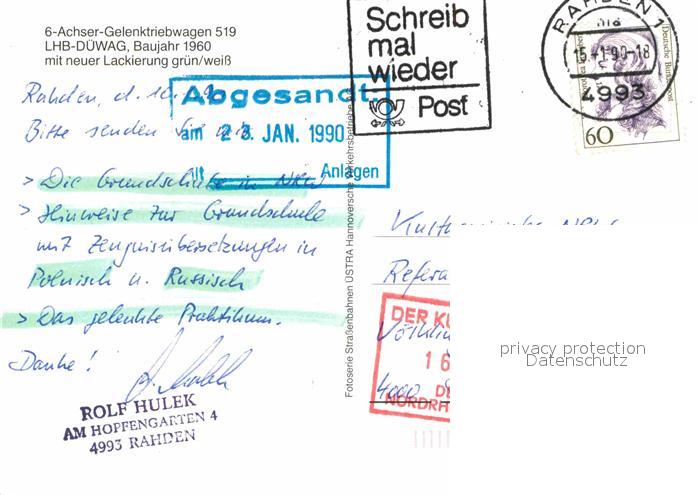 6-Achser-Gelenktriebwagen 519
LHB-DÜWAG, Baujahr 1960
mit neuer Lackierung grün/weiß
Schreib
mal
wieder
Post
RAHDEN 1
15.-1.90-18
4993
Deutsche Bundespost
60
Rahden, d.
Abgesandt
am 23. JAN. 1990
Anlagen
Bitte senden Sie mir
> Die Grundschule in NRW
> Hinweise zur Grundschule
mit Zeugnisübersetzungen in
Polnisch u. Russisch
> Das gelenkte Praktikum.
Danke!
ROLF HULEK
AM HOPFENGARTEN 4
4993 RAHDEN
Fotoserie Straßenbahnen ÜSTRA Hannoversche Verkehrsbetriebe
Refera
DER KU
16
4000
NORDRH
privacy protection
Datenschutz